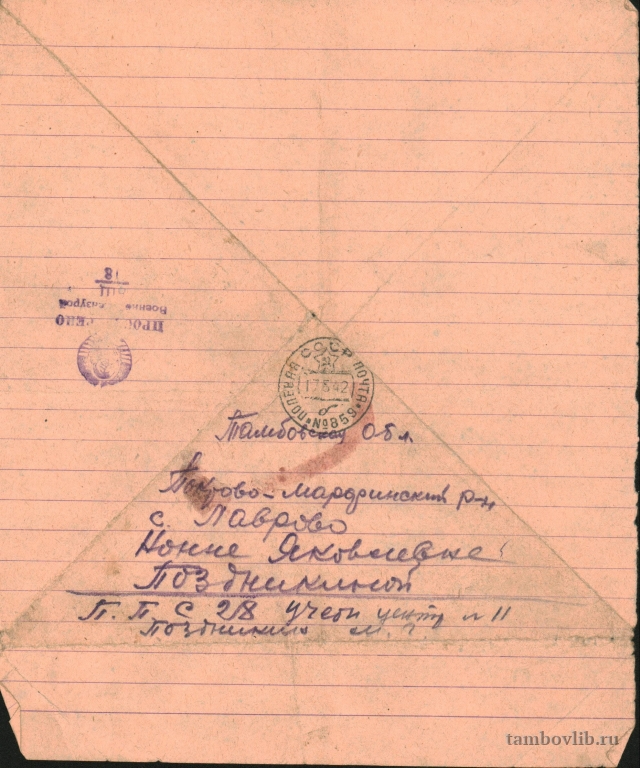 ПРОСМОТРЕНО
Военной Цензурой
8
ПОЛЕВАЯ СССР ПОЧТА
17 5 42
№859
Тамбовская Обл.
Покрово-Марфинский р-н
с. Лаврово
Нонне Яковлевне
Поздникиной
П. П. С 218 учебн центр № 11
Поздникин М.
tambovlib.ru